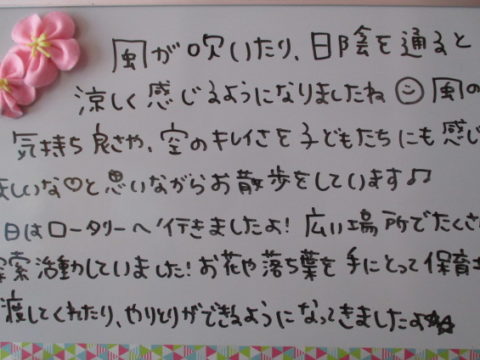 風が吹いたり、日陰を通ると
涼しく感じるようになりましたね☺風の
気持ち良さや、空のキレイさを子どもたちにも感じ
ほしいな♡と思いながらお散歩をしています♫
日はロータリーへ行きましたよ！広い場所でたくさ
探索活動していました！お花や落ち葉を手にとって保育士
渡してくれたり、やりとりができるようになってきましたよ☆☆